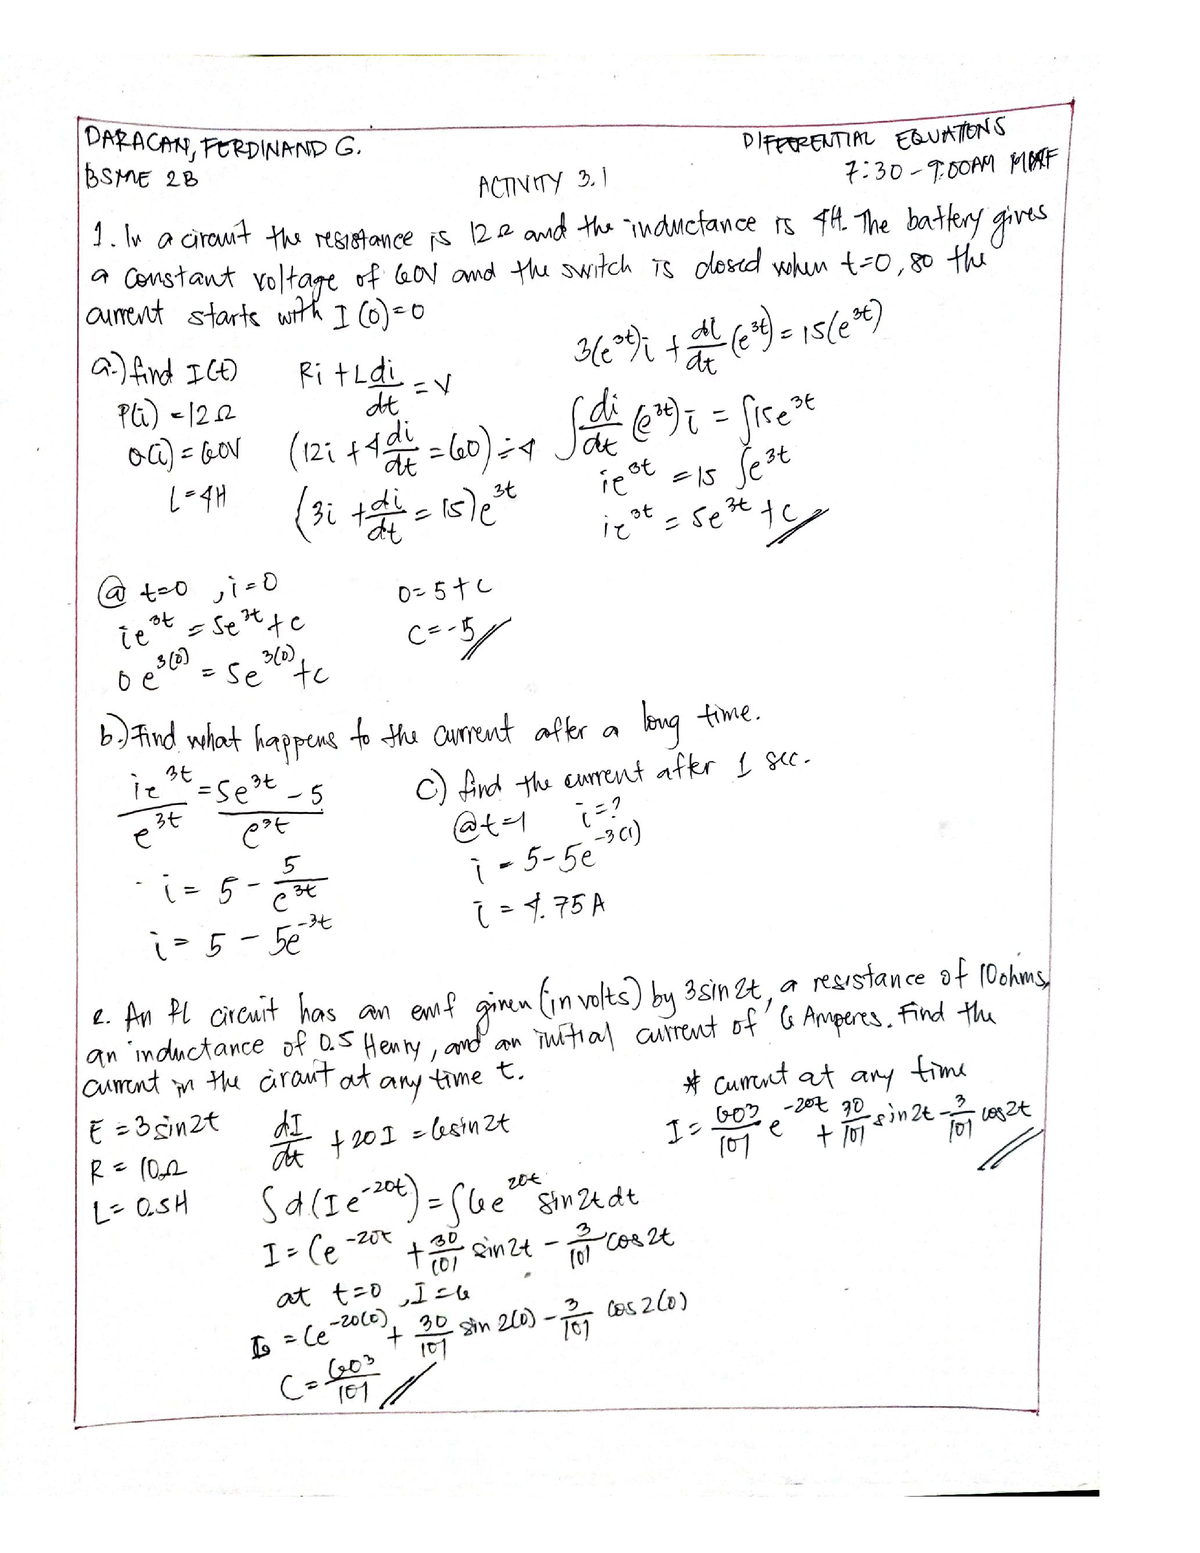 DARACAN, FERDINAND G.
DIFFERENTIAL EQUATIONS
BSME 2B
7:30 - 9:00AM
ACTIVITY 3.1
1. In a circuit the resistance is 12Ω and the inductance is 4H. The battery gives
a constant voltage of 60V and the switch is closed when t=0, so the
current starts with I(0)=0
a.) find I(t)
P(i) = 12Ω
Q(i) = 60V
L = 4H
Ri + L di/dt = V
(12i + 4 di/dt = 60) ÷ 4
(3i + di/dt = 15) e^3t
3(e^3t)i + di/dt (e^3t) = 15(e^3t)
∫ di/dt (e^3t) i = ∫15e^3t
ie^3t = 15 ∫e^3t
ie^3t = 5e^3t + c
@ t=0, i=0
ie^3t = 5e^3t + c
0e^3(0) = 5e^3(0) + c
0 = 5 + c
C = -5
b.) Find what happens to the current after a long time.
ie^3t/e^3t = 5e^3t - 5/e^3t
i = 5 - 5/e^3t
i = 5 - 5e^-3t
c) find the current after 1 sec.
@t=1 i=?
i = 5-5e^-3(1)
i = 4.75 A
2. An RL circuit has an emf given (in volts) by 3sin2t, a resistance of 10ohms,
an inductance of 0.5 Henry, and an initial current of 6 Amperes. Find the
current in the circuit at any time t.
E = 3sin2t
R = 10Ω
L = 0.5H
dI/dt + 20I = 6sin2t
∫d(Ie^-20t) = ∫6e^20t sin2tdt
I = Ce^-20t + 30/101 sin2t - 3/101 cos2t
at t=0, I=6
6 = Ce^-20(0) + 30/101 sin2(0) - 3/101 cos2(0)
C = 603/101
* current at any time
I = 603/101 e^-20t + 30/101 sin2t - 3/101 cos2t